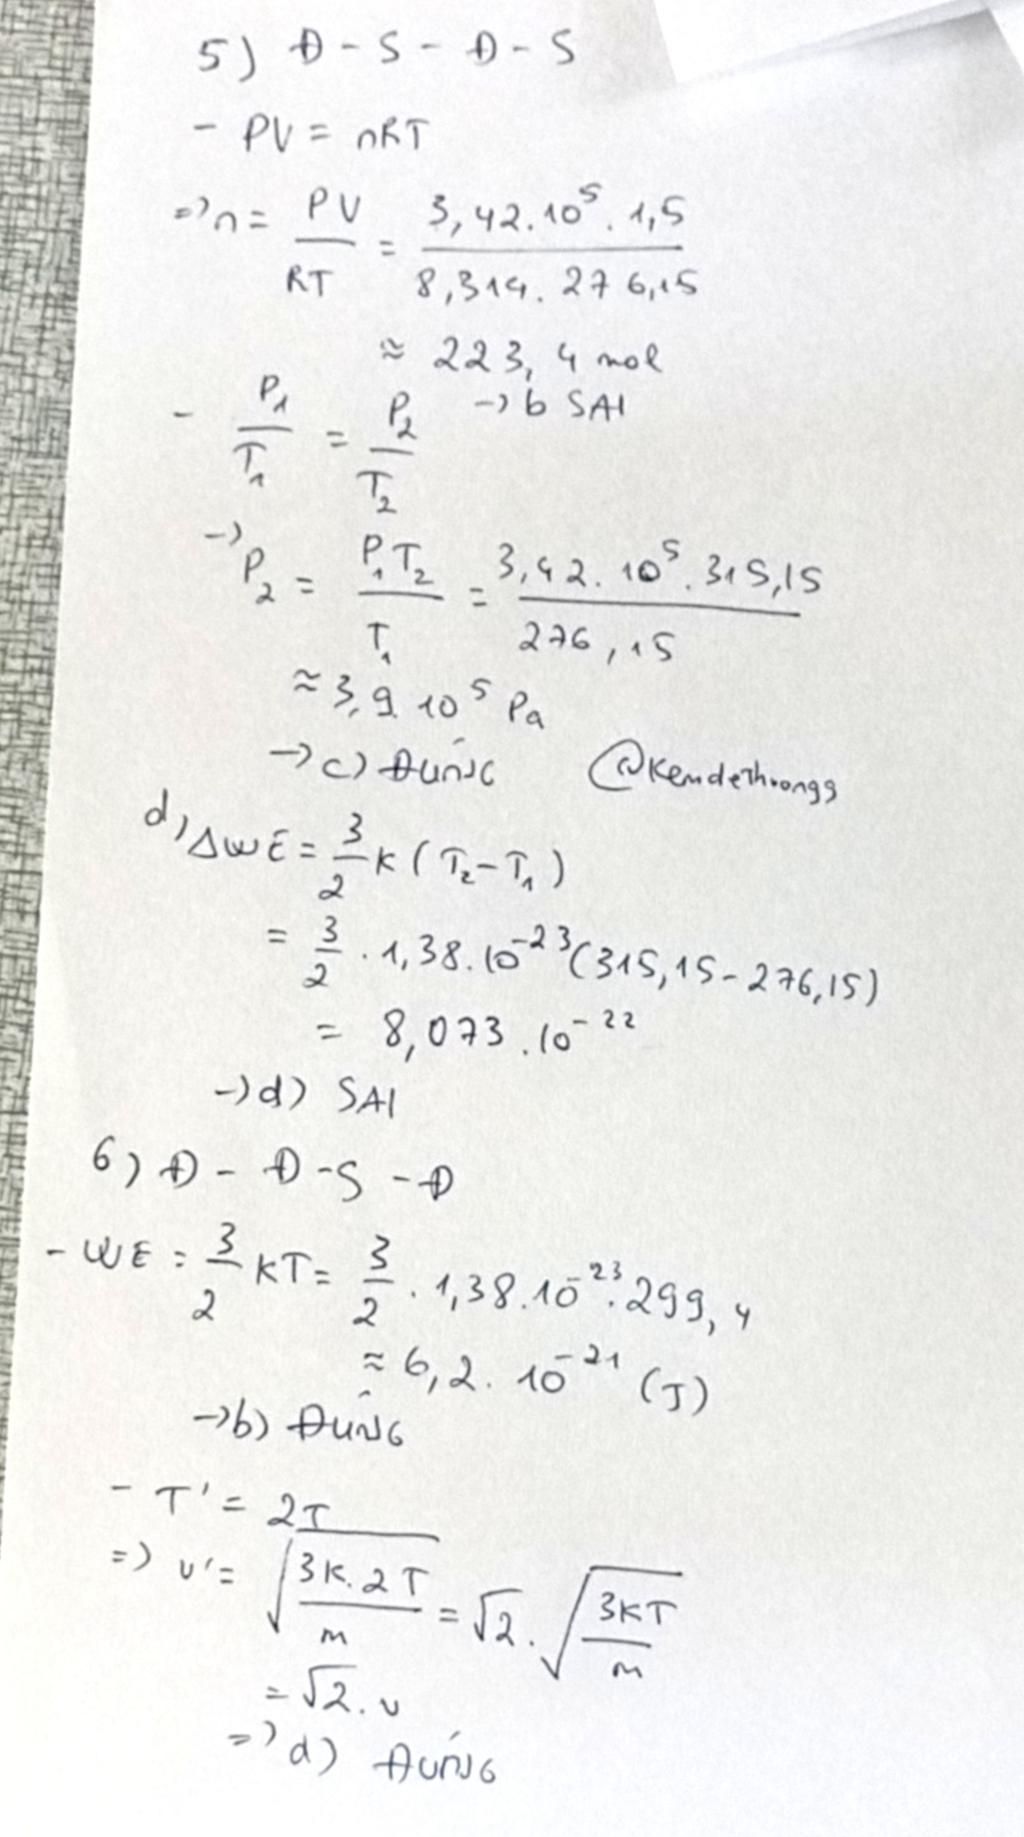 5) Đ - S - Đ - S
- PV = nRT
=> n = PV/RT = 3,42.10^5.1,5/8,314.276,15
≈ 223,4 mol
-> b SAI
- P1/T1 = P2/T2
-> P2 = P1T2/T1 = 3,42.10^5.315,15/276,15
≈ 3,9.10^5 Pa
-> c) ĐÚNG
@Kemdethuongg
d) ΔWE = 3/2 K (T2 - T1)
= 3/2 . 1,38.10^-23 (315,15 - 276,15)
= 8,073.10^-22
-> d) SAI
6) Đ - Đ - S - Đ
- WE = 3/2 KT = 3/2 . 1,38.10^-23.299,4
≈ 6,2.10^-21 (J)
-> b) ĐÚNG
- T' = 2T
=> v' = √(3K.2T/m) = √2.√(3KT/m)
= √2.v
=> d) ĐÚNG